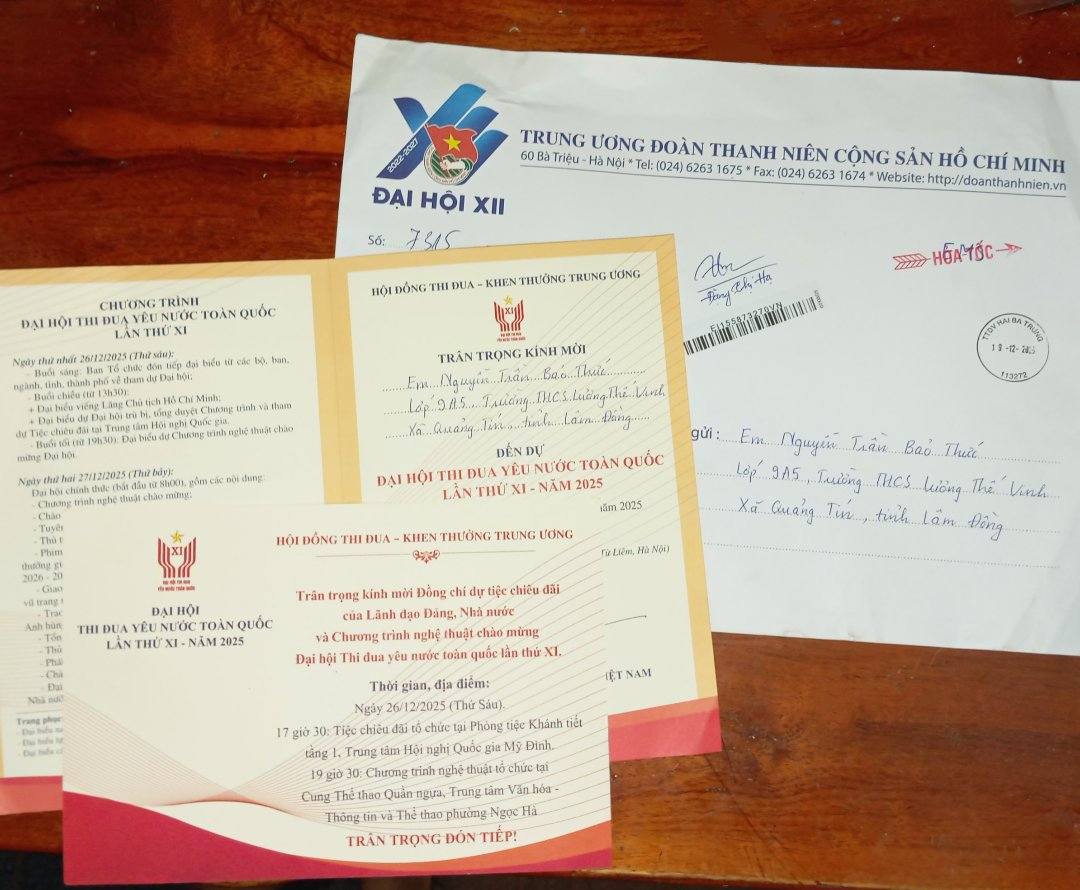 2022-2027
ĐẠI HỘI XII
TRUNG ƯƠNG ĐOÀN THANH NIÊN CỘNG SẢN HỒ CHÍ MINH
60 Bà Triệu - Hà Nội * Tel: (024) 6263 1675 * Fax: (024) 6263 1674 * Website: http://doanthanhnien.vn
Số: 7315
HỎA TỐC
EMS
Đặng Thị Hạ
EI155873270VN
TTDV HAI BÀ TRƯNG
113272
gửi : Em Nguyễn Trần Bảo Thức
Lớp 9A5, Trường THCS Lương Thế Vinh
Xã Quảng Tín, tỉnh Lâm Đồng
CHƯƠNG TRÌNH
ĐẠI HỘI THI ĐUA YÊU NƯỚC TOÀN QUỐC
LẦN THỨ XI
Ngày thứ nhất 26/12/2025 (Thứ sáu):
- Buổi sáng: Ban Tổ chức đón tiếp đại biểu từ các bộ, ban,
ngành, tỉnh, thành phố về tham dự Đại hội;
- Buổi chiều (từ 13h30):
+ Đại biểu viếng Lăng Chủ tịch Hồ Chí Minh;
+ Đại biểu dự Đại hội trù bị, tổng duyệt Chương trình và tham
dự Tiệc chiêu đãi tại Trung tâm Hội nghị Quốc gia.
- Buổi tối (từ 19h30): Đại biểu dự Chương trình nghệ thuật chào
mừng Đại hội.
Ngày thứ hai 27/12/2025 (Thứ bảy):
Đại hội chính thức (bắt đầu từ 8h00), gồm các nội dung:
- Chương trình nghệ thuật chào mừng;
- Chào
- Tuyê
- Thủ t
- Phim
thưởng gi
2026 - 20
- Giao
vũ trang
- Trao
Anh hùn
- Tổn
- Thủ
- Phá
- Chà
- Đại
Nhà nướ
Trang phục
- Đại biểu
- Đại biểu
- Đại biểu
HỘI ĐỒNG THI ĐUA – KHEN THƯỞNG TRUNG ƯƠNG
XI
ĐẠI HỘI THI ĐUA
YÊU NƯỚC TOÀN QUỐC
TRÂN TRỌNG KÍNH MỜI
Em Nguyễn Trần Bảo Thức
Lớp 9A5, Trường THCS Lương Thế Vinh
Xã Quảng Tín, tỉnh Lâm Đồng
ĐẾN DỰ
ĐẠI HỘI THI ĐUA YÊU NƯỚC TOÀN QUỐC
LẦN THỨ XI - NĂM 2025
năm 2025
Từ Liêm, Hà Nội)
IỆT NAM
XI
ĐẠI HỘI THI ĐUA
YÊU NƯỚC TOÀN QUỐC
ĐẠI HỘI
THI ĐUA YÊU NƯỚC TOÀN QUỐC
LẦN THỨ XI - NĂM 2025
HỘI ĐỒNG THI ĐUA – KHEN THƯỞNG TRUNG ƯƠNG
Trân trọng kính mời Đồng chí dự tiệc chiêu đãi
của Lãnh đạo Đảng, Nhà nước
và Chương trình nghệ thuật chào mừng
Đại hội Thi đua yêu nước toàn quốc lần thứ XI.
Thời gian, địa điểm:
Ngày 26/12/2025 (Thứ Sáu).
17 giờ 30: Tiệc chiêu đãi tổ chức tại Phòng tiệc Khánh tiết
tầng 1, Trung tâm Hội nghị Quốc gia Mỹ Đình.
19 giờ 30: Chương trình nghệ thuật tổ chức tại
Cung Thể thao Quần ngựa, Trung tâm Văn hóa -
Thông tin và Thể thao phường Ngọc Hà
TRÂN TRỌNG ĐÓN TIẾP!